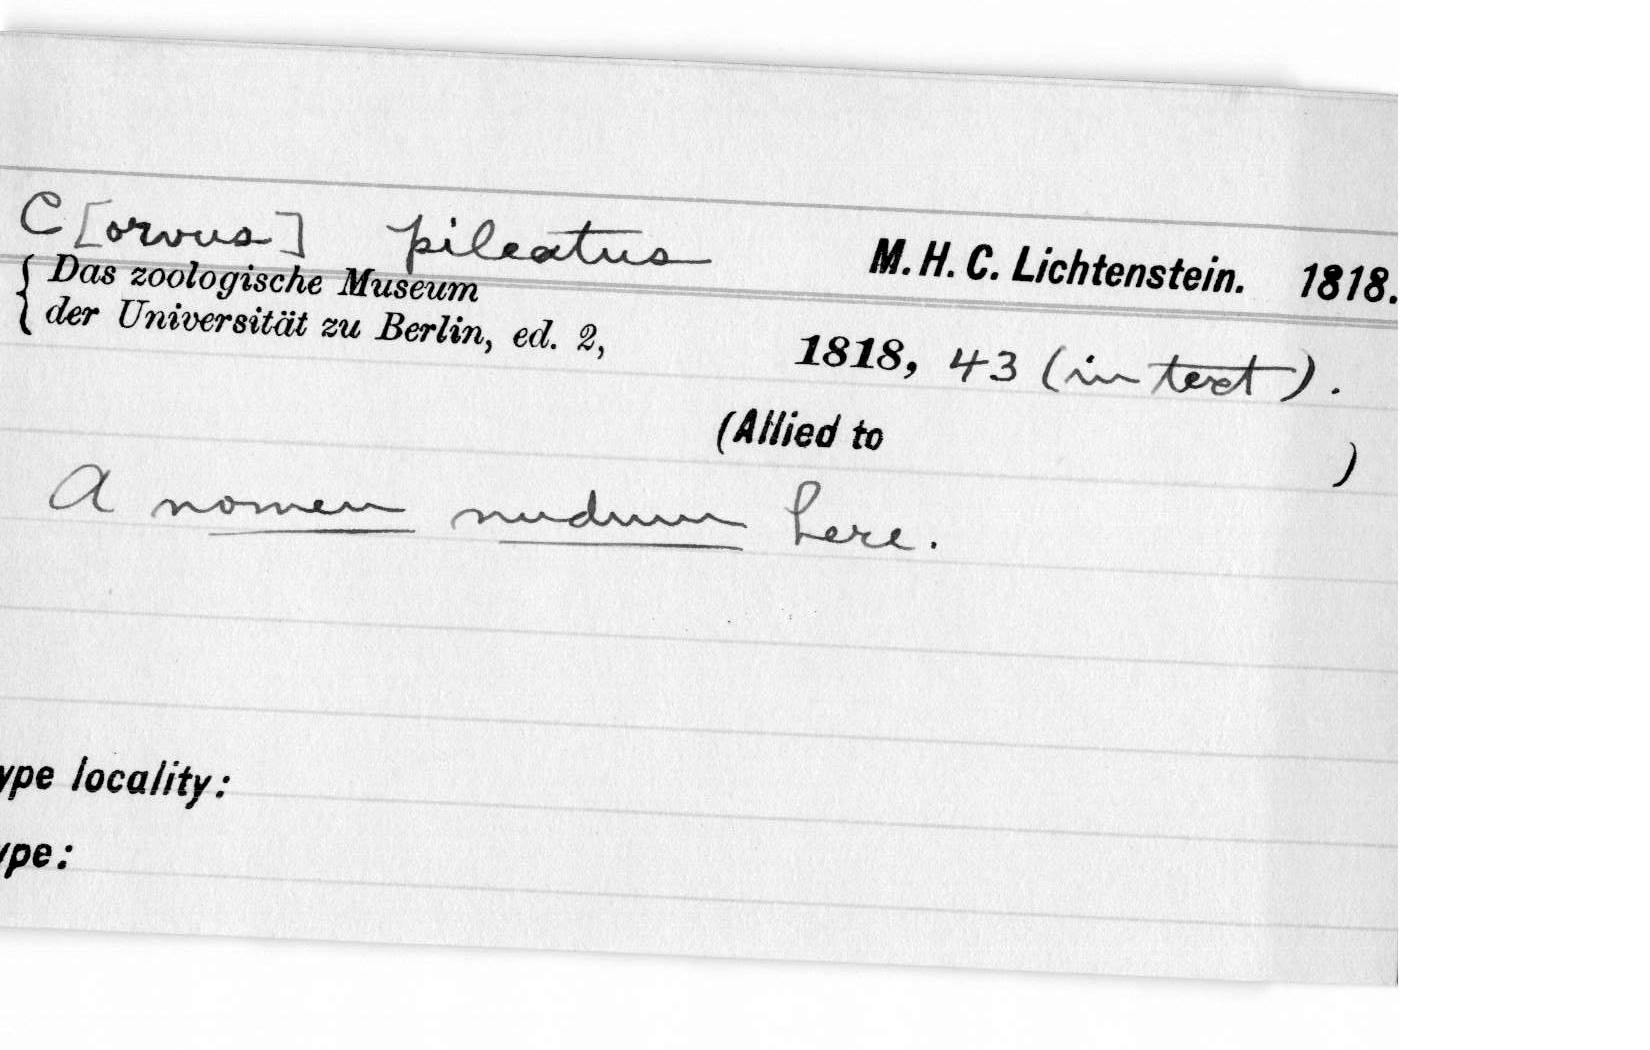 C[orvus] pileatus M. H. C. Lichtenstein. 1818.
Das zoologische Museum
der Universität zu Berlin, ed. 2,
1818, 43 (in text).
(Allied to )
A nomen nudum here.
ype locality:
ype: